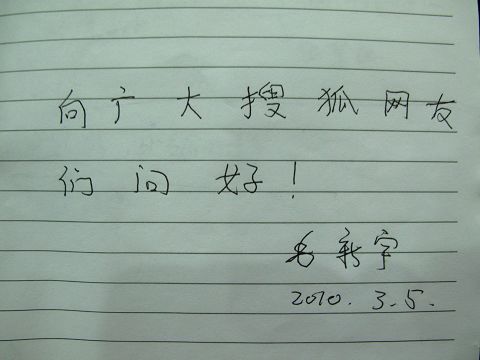 向广大搜狐网友
们问好！
毛新宇
2010.3.5.